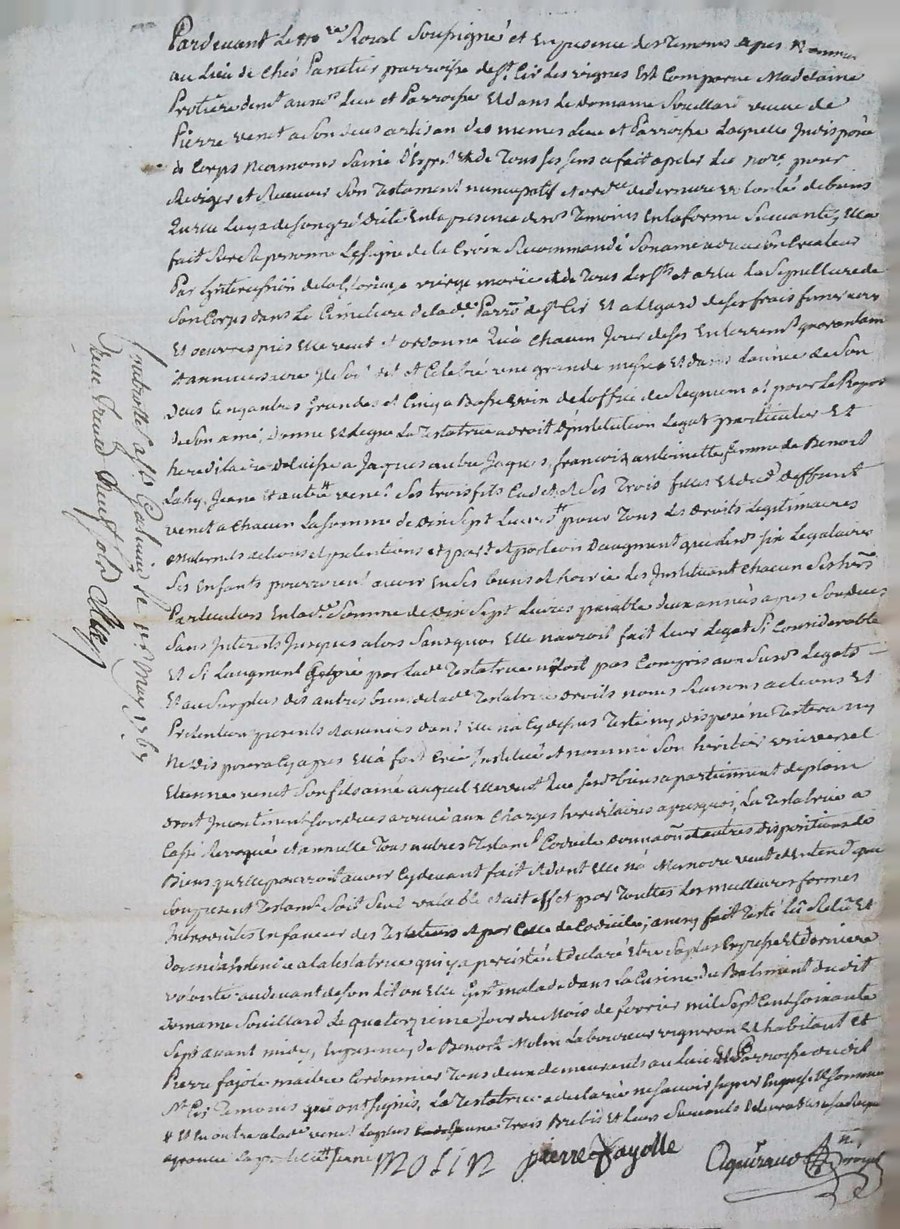 Pardevant Le no^re Royal Soussigné et En presence des Temoins apres nommes
au Lieu de ches Panetier parroisse de S^t Cir les vignes Est Comparue Madelaine
Protiere dem^t aud^t Lieu et Parroisse Et dans Le domaine Souillard veuve de
Pierre venet a Son deces artisan des memes Lieu et Parroisse Laquelle Indisposée
de Corps neanmoins Saine d'Esprit Et de Tous ses sens a fait apeler Led no^re pour
Rediger et Recevoir Son Testament nuncupatif et de derniere volonté de biens
Quelle Luy a de son gré dicté En la presence des Temoins En la forme Suivante, Elle a
fait Sur Sa personne Le signe de la Croix Recommandé Son ame a dieu Createur
Par Lintercession de la Glorieuse vierge marie et de Tous Les S^ts et a Elu La Sepulture de
Son Corps dans Le Cimetiere de lad^e Parro^e de S^t Cir Et a legard de ses frais funeraires
Et oeuvres pies Elle veut et ordonne Qu'a chacun Jour de ses Enterrem^t quarantain
et anniversaire Il Soit dit et Celebré une grande messe Et dans Lannée de Son
Deces Cinq autres Grandes et Cinq a Basse voix de Loffice de Requiem et pour Le Repos
de Son ame, Donne Et Legue La Testatrice a droit d'institution Legat particulier Et
hereditaire delaisse a Jaques autre Jaques, francois, antoinette femme de Benoit
Lahy, Jeane Et autre venet Ses trois fils Cadets et Ses Trois filles et dud^t deffunt
venet a Chacun La Somme de dix Sept Livres pour Tous Les Droits Legitimaires
maternels actions et pretentions et part et portion D'augment que Lesd^s six Legataires
Ses Enfants pourroient avoir En Ses biens et hoirie Les Instituant chacun Ses her^s
Particuliers En lad^e Somme de dix Sept Livres payable deux années apres Son deces
Sans Interets Jusques alors Sans quoi Elle nauroit fait leur Legat Si Considerable
Et Si Laugment gagné par Lad^e Testatrice nétoit pas Compris aux Susd^s Legats
Et au Surplus des autres biens de lad^e Testatrice droits noms Raisons actions Et
Pretentions presents et avenirs dont Elle na Cy dessus Testé ny disposé ne Testera ny
Ne disposera Cy apres Elle a fait Créé Institué et nommé Son heritier universel
Etienne venet Son fils ainé auquel Elle veut Que Sesd^s biens apartiennent de plein
droit Incontinent Son deces arrivé aux Charges hereditaires apres quoi, La Testatrice a
Cassé Revoqué et annullé Tous autres Testam^t Codicile donnation et autres dispositions de
Biens qu'Elle pourroit avoir Cy devant fait et dont Elle na Memoire veut et Entend que
Son present Testam^t Soit Seul valable et ait effet par Touttes Les meilleures formes
Introduites En faveur des Testateurs et par Celle de Codicile; ainsy fait Testé Lû Relû Et
donné a Entendre a la Testatrice qui y a persisté et declaré Etre Sa plus Expresse Et derniere
volonté au devant de son Lit ou Elle Gist malade dans La Cuisine du Batiment dudit
domaine Souillard Le quatorzieme Jour du Mois de fevrier mil Sept Cent Soixante
Sept avant midy, En presence, de Benoit Molin Laboureur vigneron Et habitant et
Pierre fajole maitre Cordonnier Tous deux demeurants au Lieu Et Parroisse dudit
S^t Cir Temoins qui ont signés, La Testatrice a declaré ne Savoir signer Enquise Et Sommée
Et En outre a lad^e venet La plus Jeune Trois Brebis Et Leurs Suivants
Jeane
MOLIN
pierre Fayolle
Aguiraud no^re royal
Controllé a S^t Galmier Le 1^er May 1767
Recu Treize Livres neuf sols